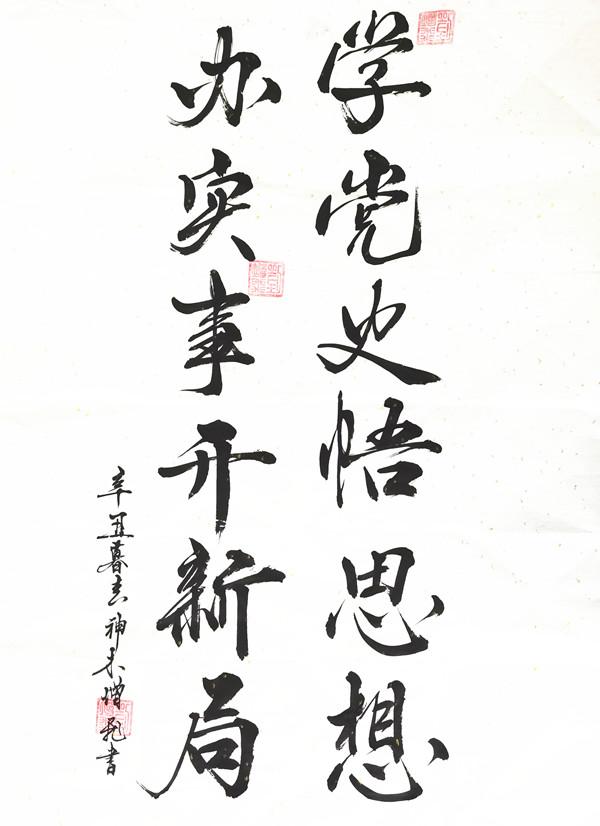 学党史悟思想
办实事开新局
辛丑暮春神木增飞书